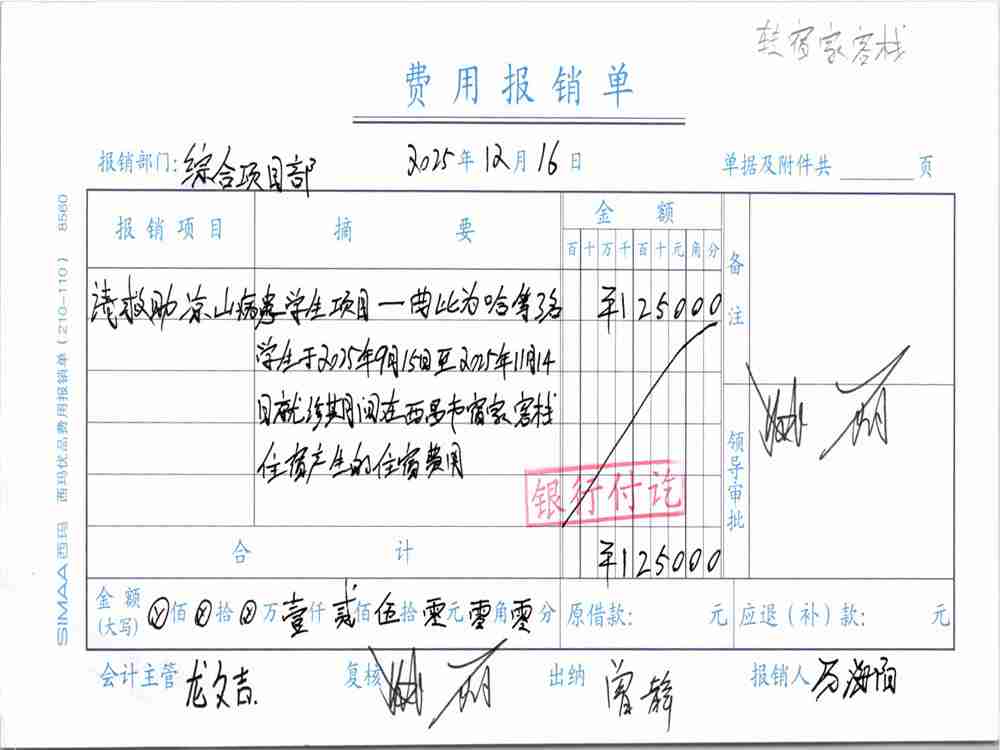 转宿家客栈
费用报销单
报销部门: 综合项目部 2025年12月16日 单据及附件共 页
报销项目 摘要 金额 备注
百十万千百十元角分
请救助凉山病患学生项目—曲比为哈等3名 ¥125000
学生于2025年9月15日至2025年11月14
日就诊期间在西昌市宿家客栈
住宿产生的住宿费用
银行付讫
领导审批
合计 ¥125000
金额(大写) ⊗佰⊗拾⊗万壹仟贰佰伍拾零元零角零分 原借款: 元 应退(补)款: 元
会计主管 龙文吉 复核 出纳 曾静 报销人 万海阳
SIMAA西玛 西玛优品费用报销单(210-110) 8560